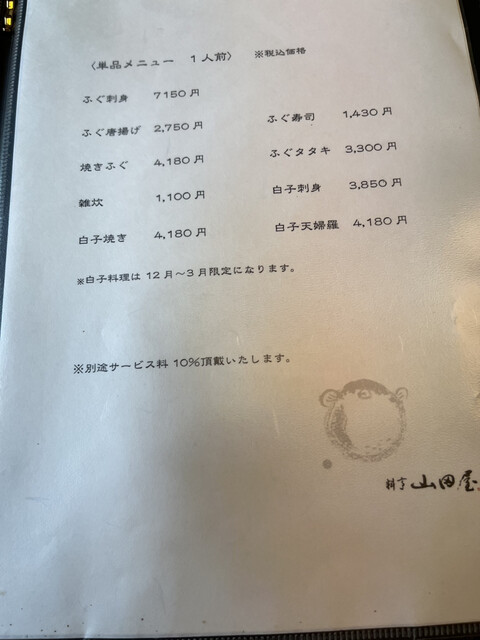 〈単品メニュー 1人前〉 ※税込価格
ふぐ刺身 7150円
ふぐ唐揚げ 2,750円
焼きふぐ 4,180円
雑炊 1,100円
白子焼き 4,180円
ふぐ寿司 1,430円
ふぐタタキ 3,300円
白子刺身 3,850円
白子天婦羅 4,180円
※白子料理は12月～3月限定になります。
※別途サービス料10%頂戴いたします。
料亭 山田屋